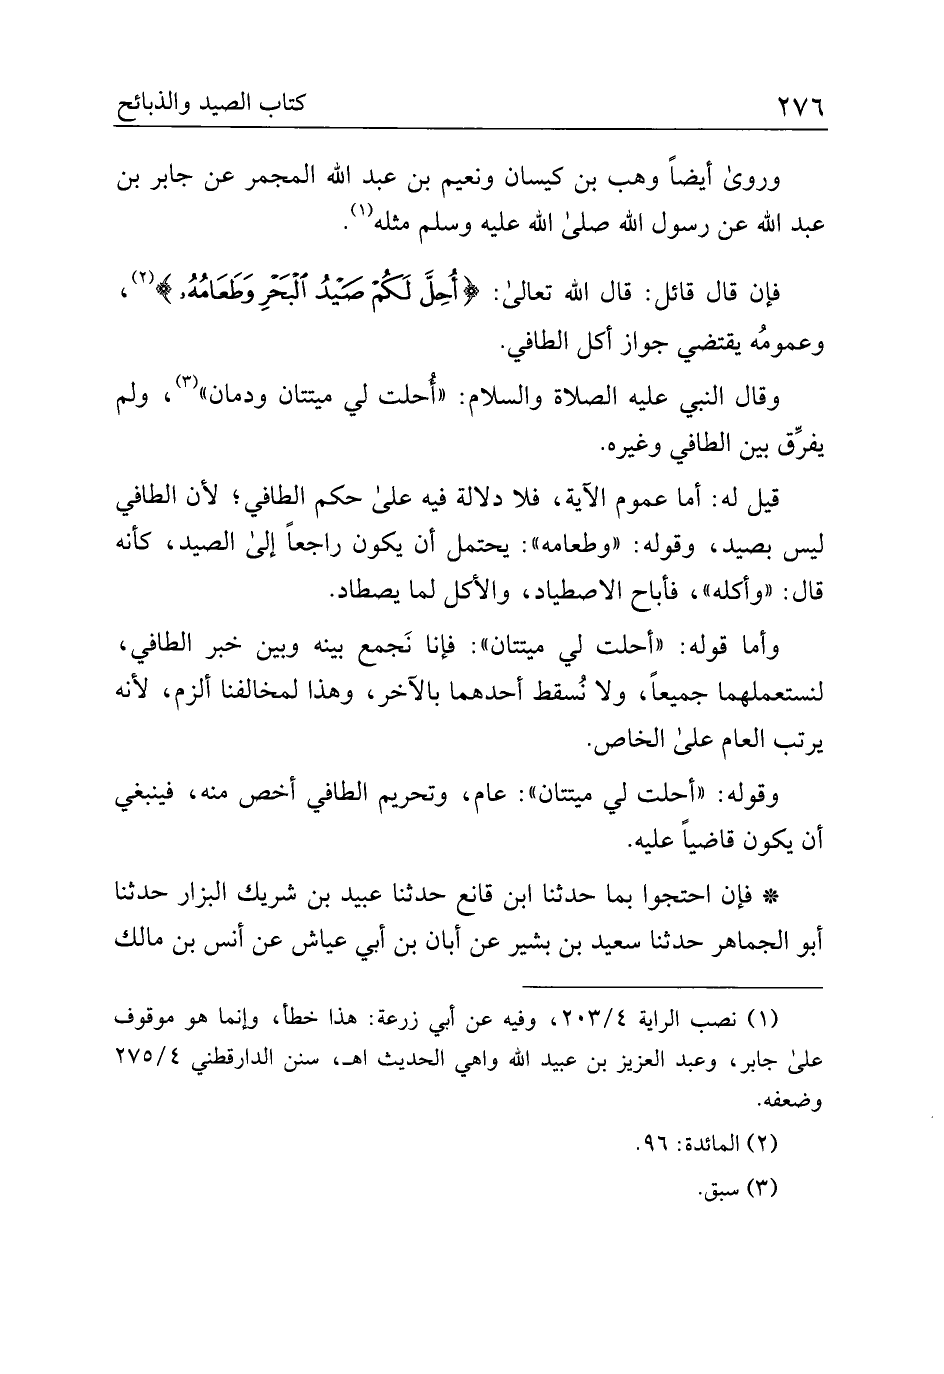 ٢٧٦ كتاب الصيد والذبائح
وروىٰ أيضاً وهب بن كيسان ونعيم بن عبد الله المجمر عن جابر بن
عبد الله عن رسول الله صلىٰ الله عليه وسلم مثله(١).
فإن قال قائل: قال الله تعالىٰ: ﴿أُحِلَّ لَكُمْ صَيْدُ ٱلْبَحْرِ وَطَعَامُهُۥ﴾(٢)،
وعمومُه يقتضي جواز أكل الطافي.
وقال النبي عليه الصلاة والسلام: «أُحلت لي ميتتان ودمان»(٣)، ولم
يفرِّق بين الطافي وغيره.
قيل له: أما عموم الآية، فلا دلالة فيه علىٰ حكم الطافي؛ لأن الطافي
ليس بصيد، وقوله: «وطعامه»: يحتمل أن يكون راجعاً إلىٰ الصيد، كأنه
قال: «وأكله»، فأباح الاصطياد، والأكل لما يصطاد.
وأما قوله: «أحلت لي ميتتان»: فإنا نَجمع بينه وبين خبر الطافي،
لنستعملهما جميعاً، ولا نُسقط أحدهما بالآخر، وهذا لمخالفنا ألزم، لأنه
يرتب العام علىٰ الخاص.
وقوله: «أحلت لي ميتتان»: عام، وتحريم الطافي أخص منه، فينبغي
أن يكون قاضياً عليه.
* فإن احتجوا بما حدثنا ابن قانع حدثنا عبيد بن شريك البزار حدثنا
أبو الجماهر حدثنا سعيد بن بشير عن أبان بن أبي عياش عن أنس بن مالك
(١) نصب الراية ٢٠٣/٤، وفيه عن أبي زرعة: هذا خطأ، وإنما هو موقوف
علىٰ جابر، وعبد العزيز بن عبيد الله واهي الحديث اهـ، سنن الدارقطني ٢٧٥/٤
وضعفه.
(٢) المائدة: ٩٦.
(٣) سبق.